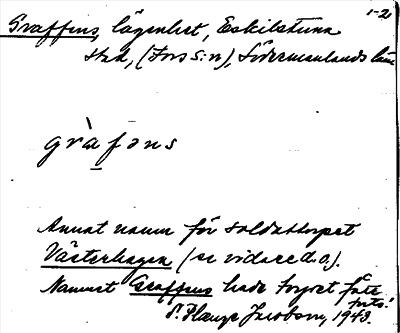 1-2
Graffens, lägenhet, Eskilstuna
stad, (Fors s:n), Södermanlands län
gràfəns
Annat namn för soldattorpet
Västerhagen (se vidare d.o.).
Namnet Graffens hade torpet före
forts!
P. Plenge Jacobson, 1943.